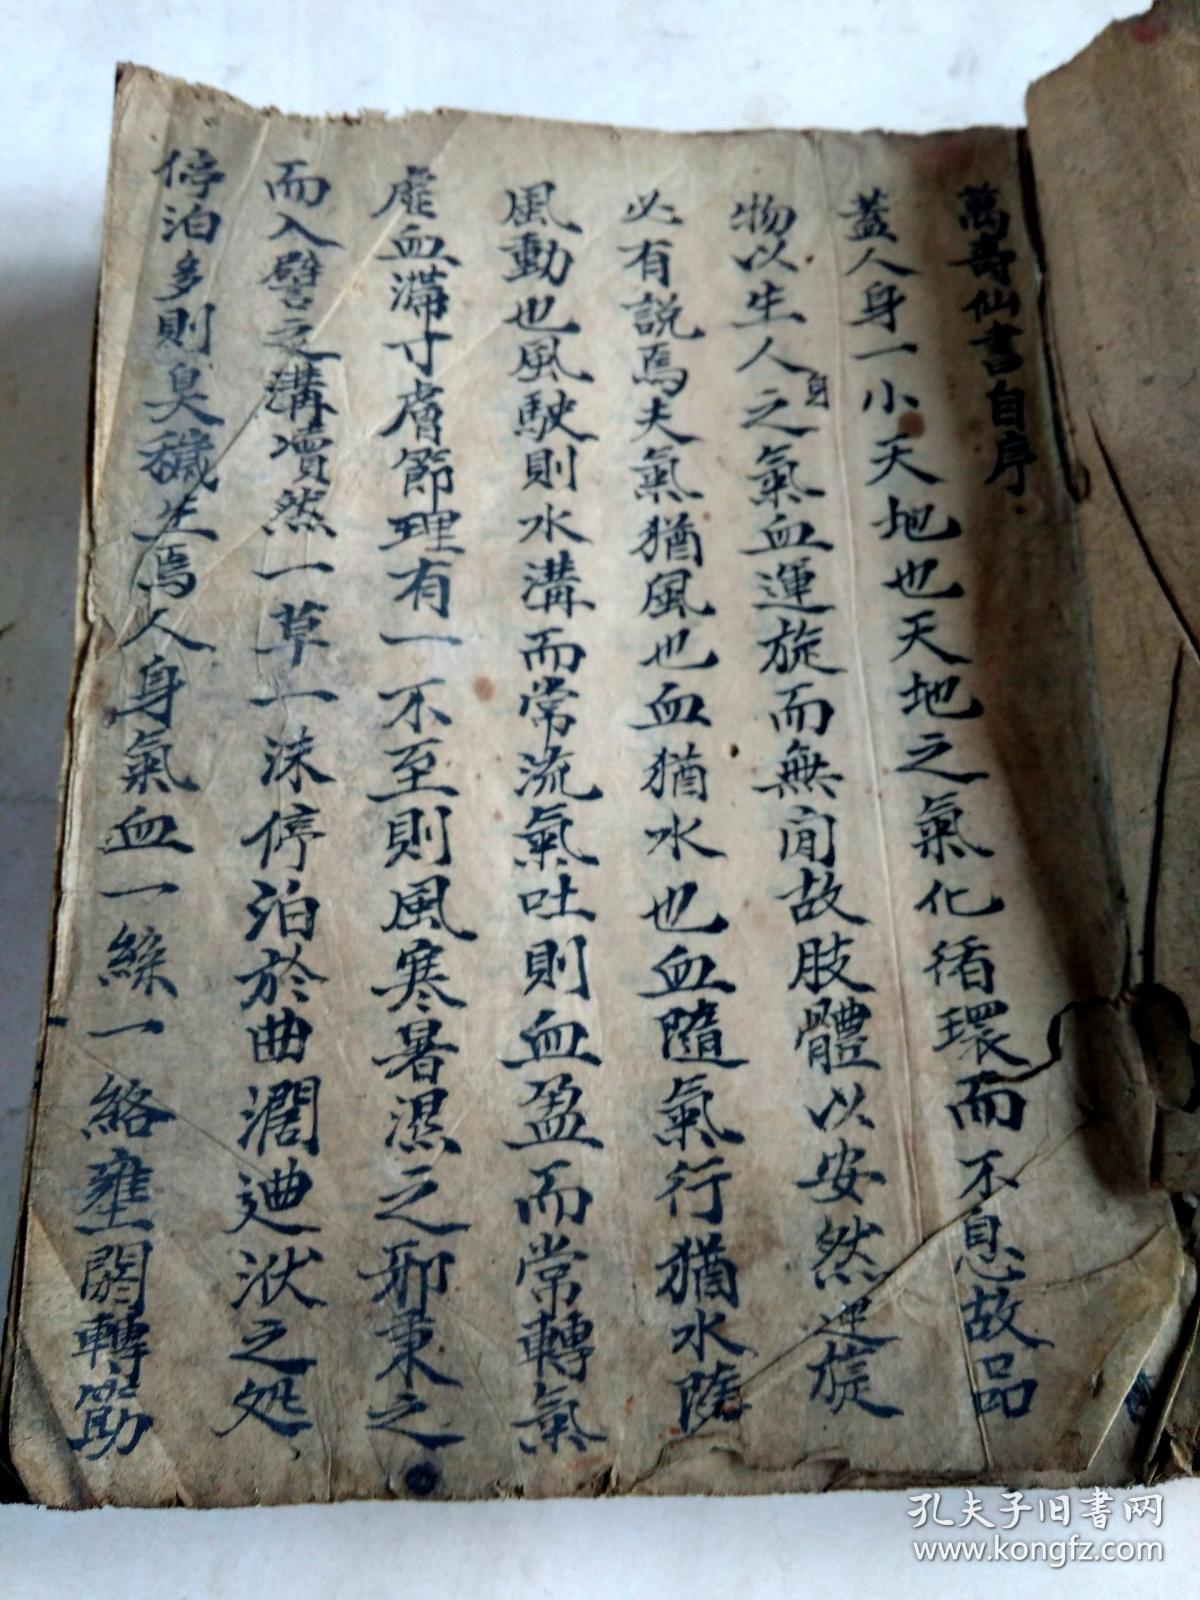 萬壽仙書自序
蓋人身一小天地也天地之氣化循環而不息故品
物以生人之身氣血運旋而無間故肢體以安然運旋
必有説焉夫氣猶風也血猶水也血隨氣行猶水隨
風動也風駛則水溝而常流氣吐則血盈而常轉氣
虛血滯寸膚節理有一不至則風寒暑濕之邪乘之
而入譬之溝瀆然一草一沫停泊於曲濶迪洑之処
停泊多則臭穢生焉人身氣血一絲一絡壅閼轉筯
孔夫子旧书网
www.kongfz.com